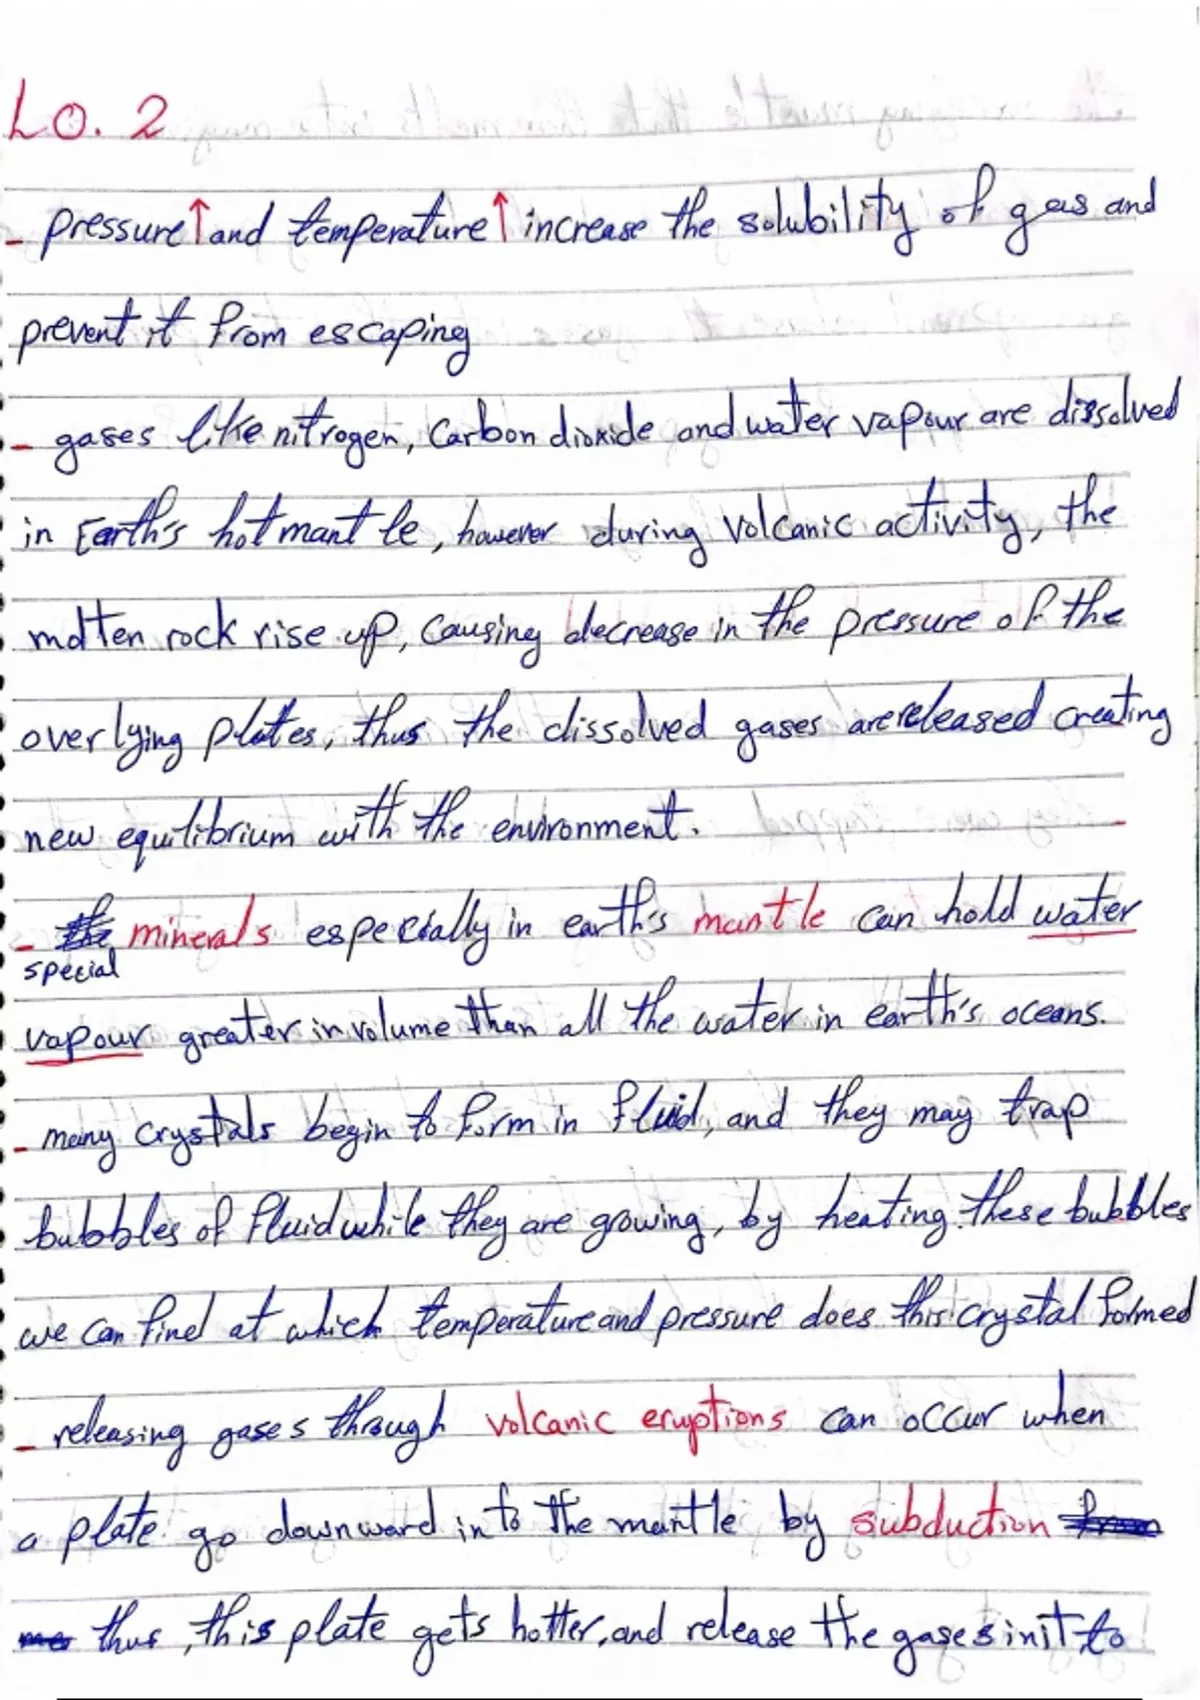 LO. 2
- pressure↑ and temperature↑ increase the solubility of gas and
prevent it from escaping
- gases like nitrogen, Carbon dioxide and water vapour are dissolved
in Earth's hot mantle, however during volcanic activity, the
molten rock rise up, causing decrease in the pressure of the
overlying plates, thus the dissolved gases are released creating
new equilibrium with the environment.
- the minerals especially in earth's mantle can hold water
special
vapour greater in volume than all the water in earth's oceans.
- many crystals begin to form in fluid, and they may trap
bubbles of fluid while they are growing, by heating these bubbles
we can find at which temperature and pressure does this crystal formed
- releasing gases through volcanic eruptions can occur when
a plate go downward into the mantle by subduction from
thus, this plate gets hotter, and release the gases in it to